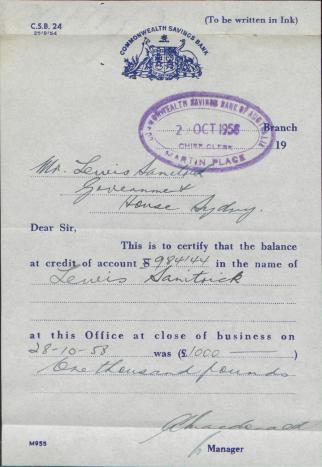 C.S.B. 24
25/9/54
(To be written in Ink)
COMMONWEALTH SAVINGS BANK
COMMONWEALTH SAVINGS BANK OF AUSTRALIA
2 OCT 1958
CHIEF CLERK
MARTIN PLACE
Branch
19
Mr. Lewis
Government
House Sydney.
Dear Sir,
This is to certify that the balance
at credit of account S 984144 in the name of
Lewis
at this Office at close of business on
28-10-58 was (£1000 )
One thousand pounds
Manager
M955